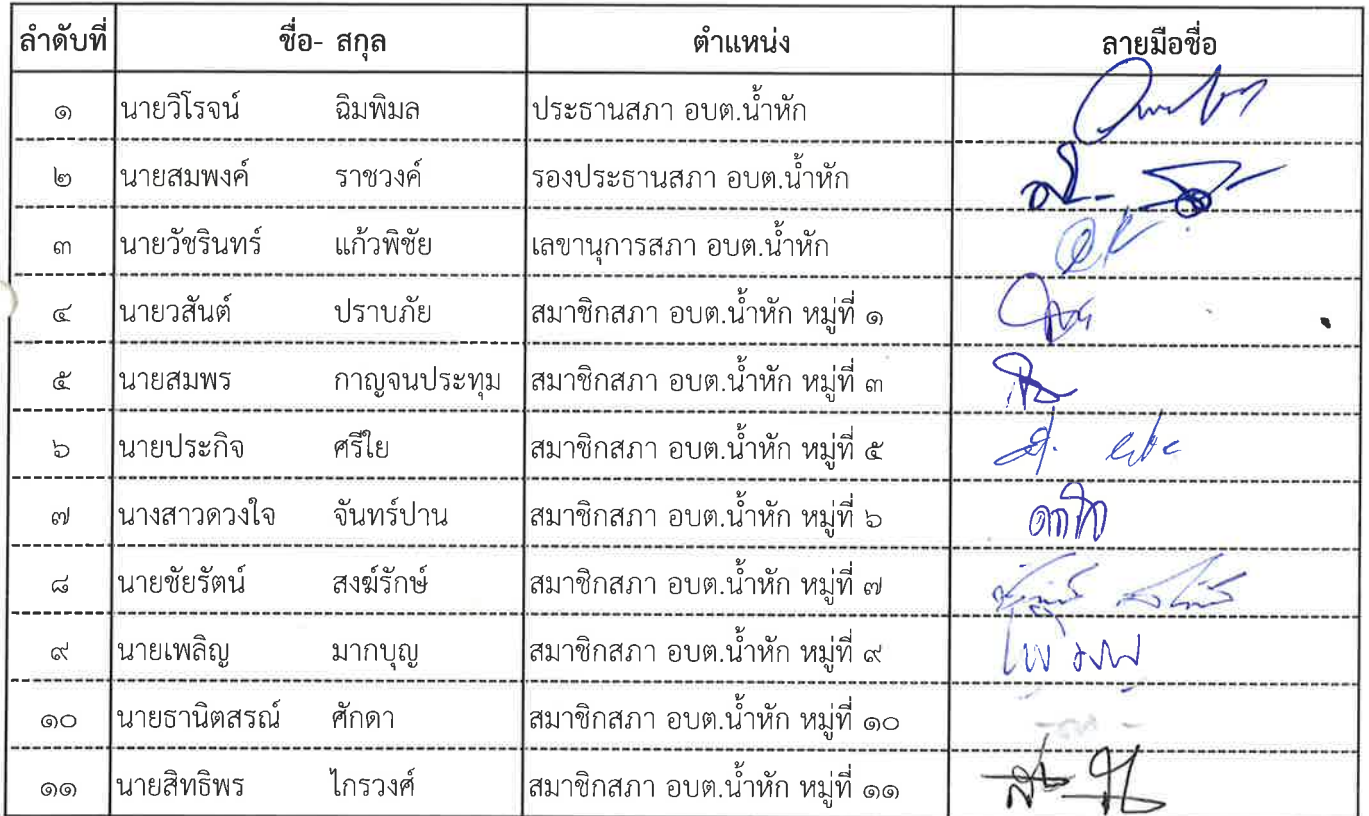 ลำดับที่ ชื่อ- สกุล ตำแหน่ง ลายมือชื่อ
๑ นายวิโรจน์ ฉิมพิมล ประธานสภา อบต.น้ำหัก
๒ นายสมพงค์ ราชวงค์ รองประธานสภา อบต.น้ำหัก
๓ นายวัชรินทร์ แก้วพิชัย เลขานุการสภา อบต.น้ำหัก
๔ นายวสันต์ ปราบภัย สมาชิกสภา อบต.น้ำหัก หมู่ที่ ๑
๕ นายสมพร กาญจนประทุม สมาชิกสภา อบต.น้ำหัก หมู่ที่ ๓
๖ นายประกิจ ศรีใย สมาชิกสภา อบต.น้ำหัก หมู่ที่ ๕
๗ นางสาวดวงใจ จันทร์ปาน สมาชิกสภา อบต.น้ำหัก หมู่ที่ ๖
๘ นายชัยรัตน์ สงฆ์รักษ์ สมาชิกสภา อบต.น้ำหัก หมู่ที่ ๗
๙ นายเพลิญ มากบุญ สมาชิกสภา อบต.น้ำหัก หมู่ที่ ๙
๑๐ นายธานิตสรณ์ ศักดา สมาชิกสภา อบต.น้ำหัก หมู่ที่ ๑๐
๑๑ นายสิทธิพร ไกรวงศ์ สมาชิกสภา อบต.น้ำหัก หมู่ที่ ๑๑